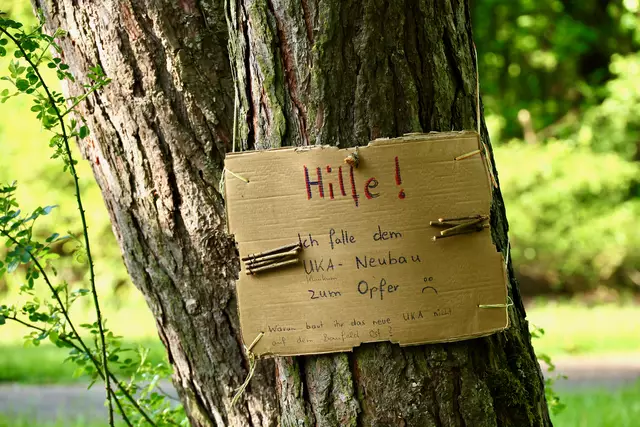 Hilfe!
Ich falle dem
UKA-Neubau
Klinikum
zum Opfer ☹
Warum baut ihr das neue UKA nicht
auf dem Baufeld Ost?